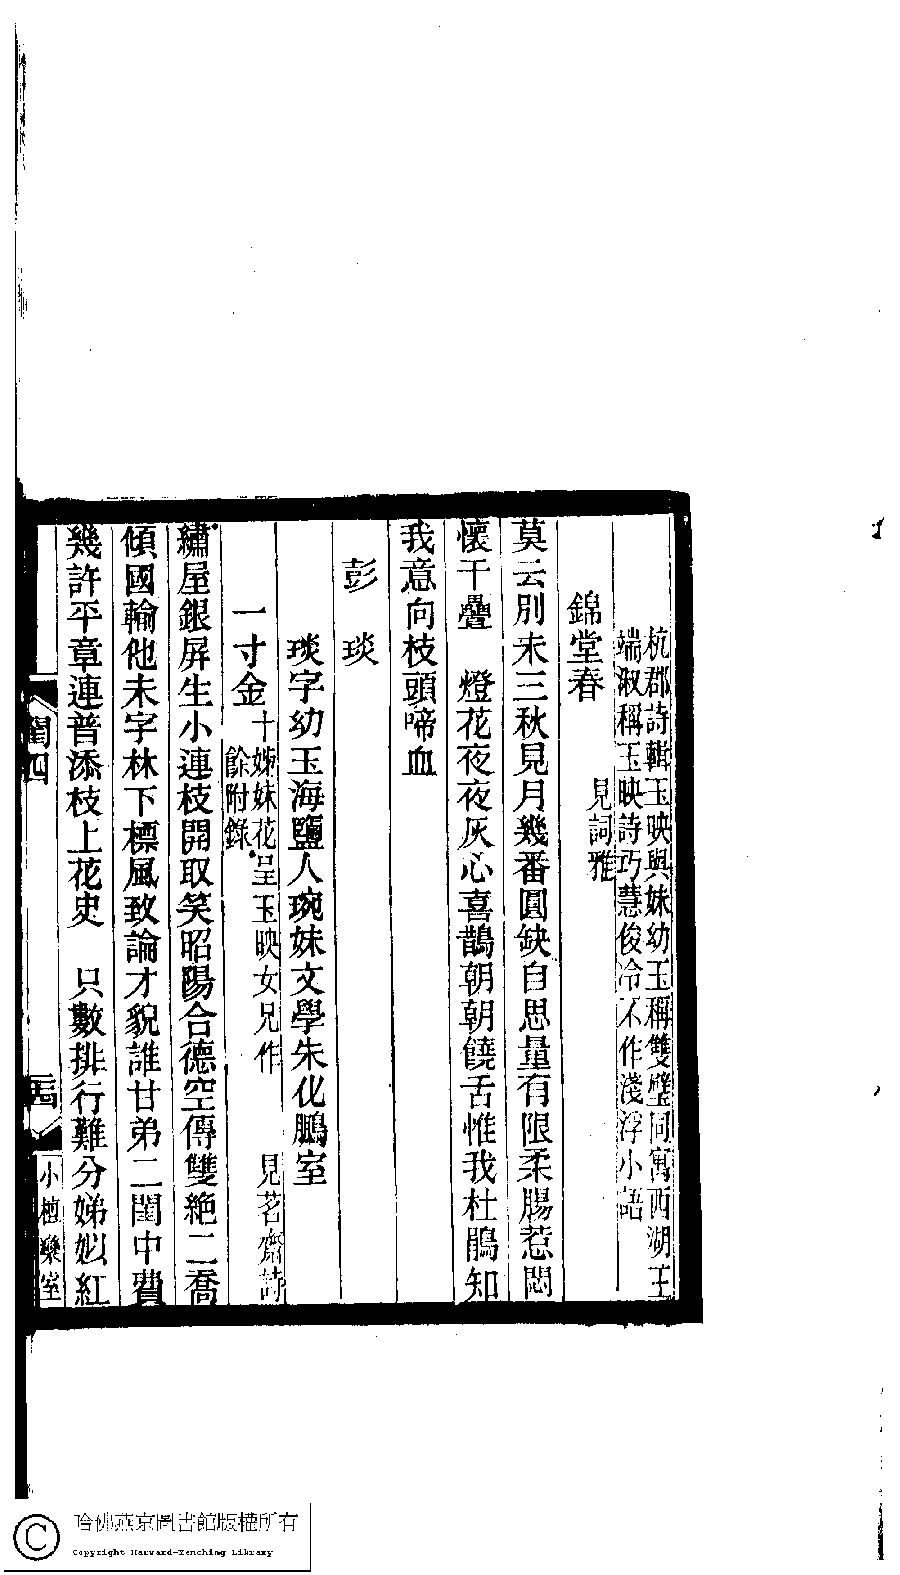 杭郡詩輯玉映與妹幼玉稱雙璧同寓西湖王
端淑稱玉映詩巧慧俊冷不作淺浮小語
錦堂春　見詞雅
莫云別未三秋見月幾番圓缺自思量有限柔腸惹悶
懷千疊　燈花夜夜灰心喜鵲朝朝饒舌惟我杜鵑知
我意向枝頭啼血
彭　琰
琰字幼玉海鹽人琬妹文學朱化鵬室
一寸金　十姊妹花呈玉映女兄作　見茗齋詩
餘附錄
繡屋銀屏生小連枝開取笑昭陽合德空傳雙絶二喬
傾國輸他未字林下標風致論才貌誰甘弟二閨中費
幾許平章連普添枝上花史　只數排行難分娣姒紅
閨四
小檀欒室
哈佛燕京圖書館版權所有
Copyright Harvard-Yenching Library